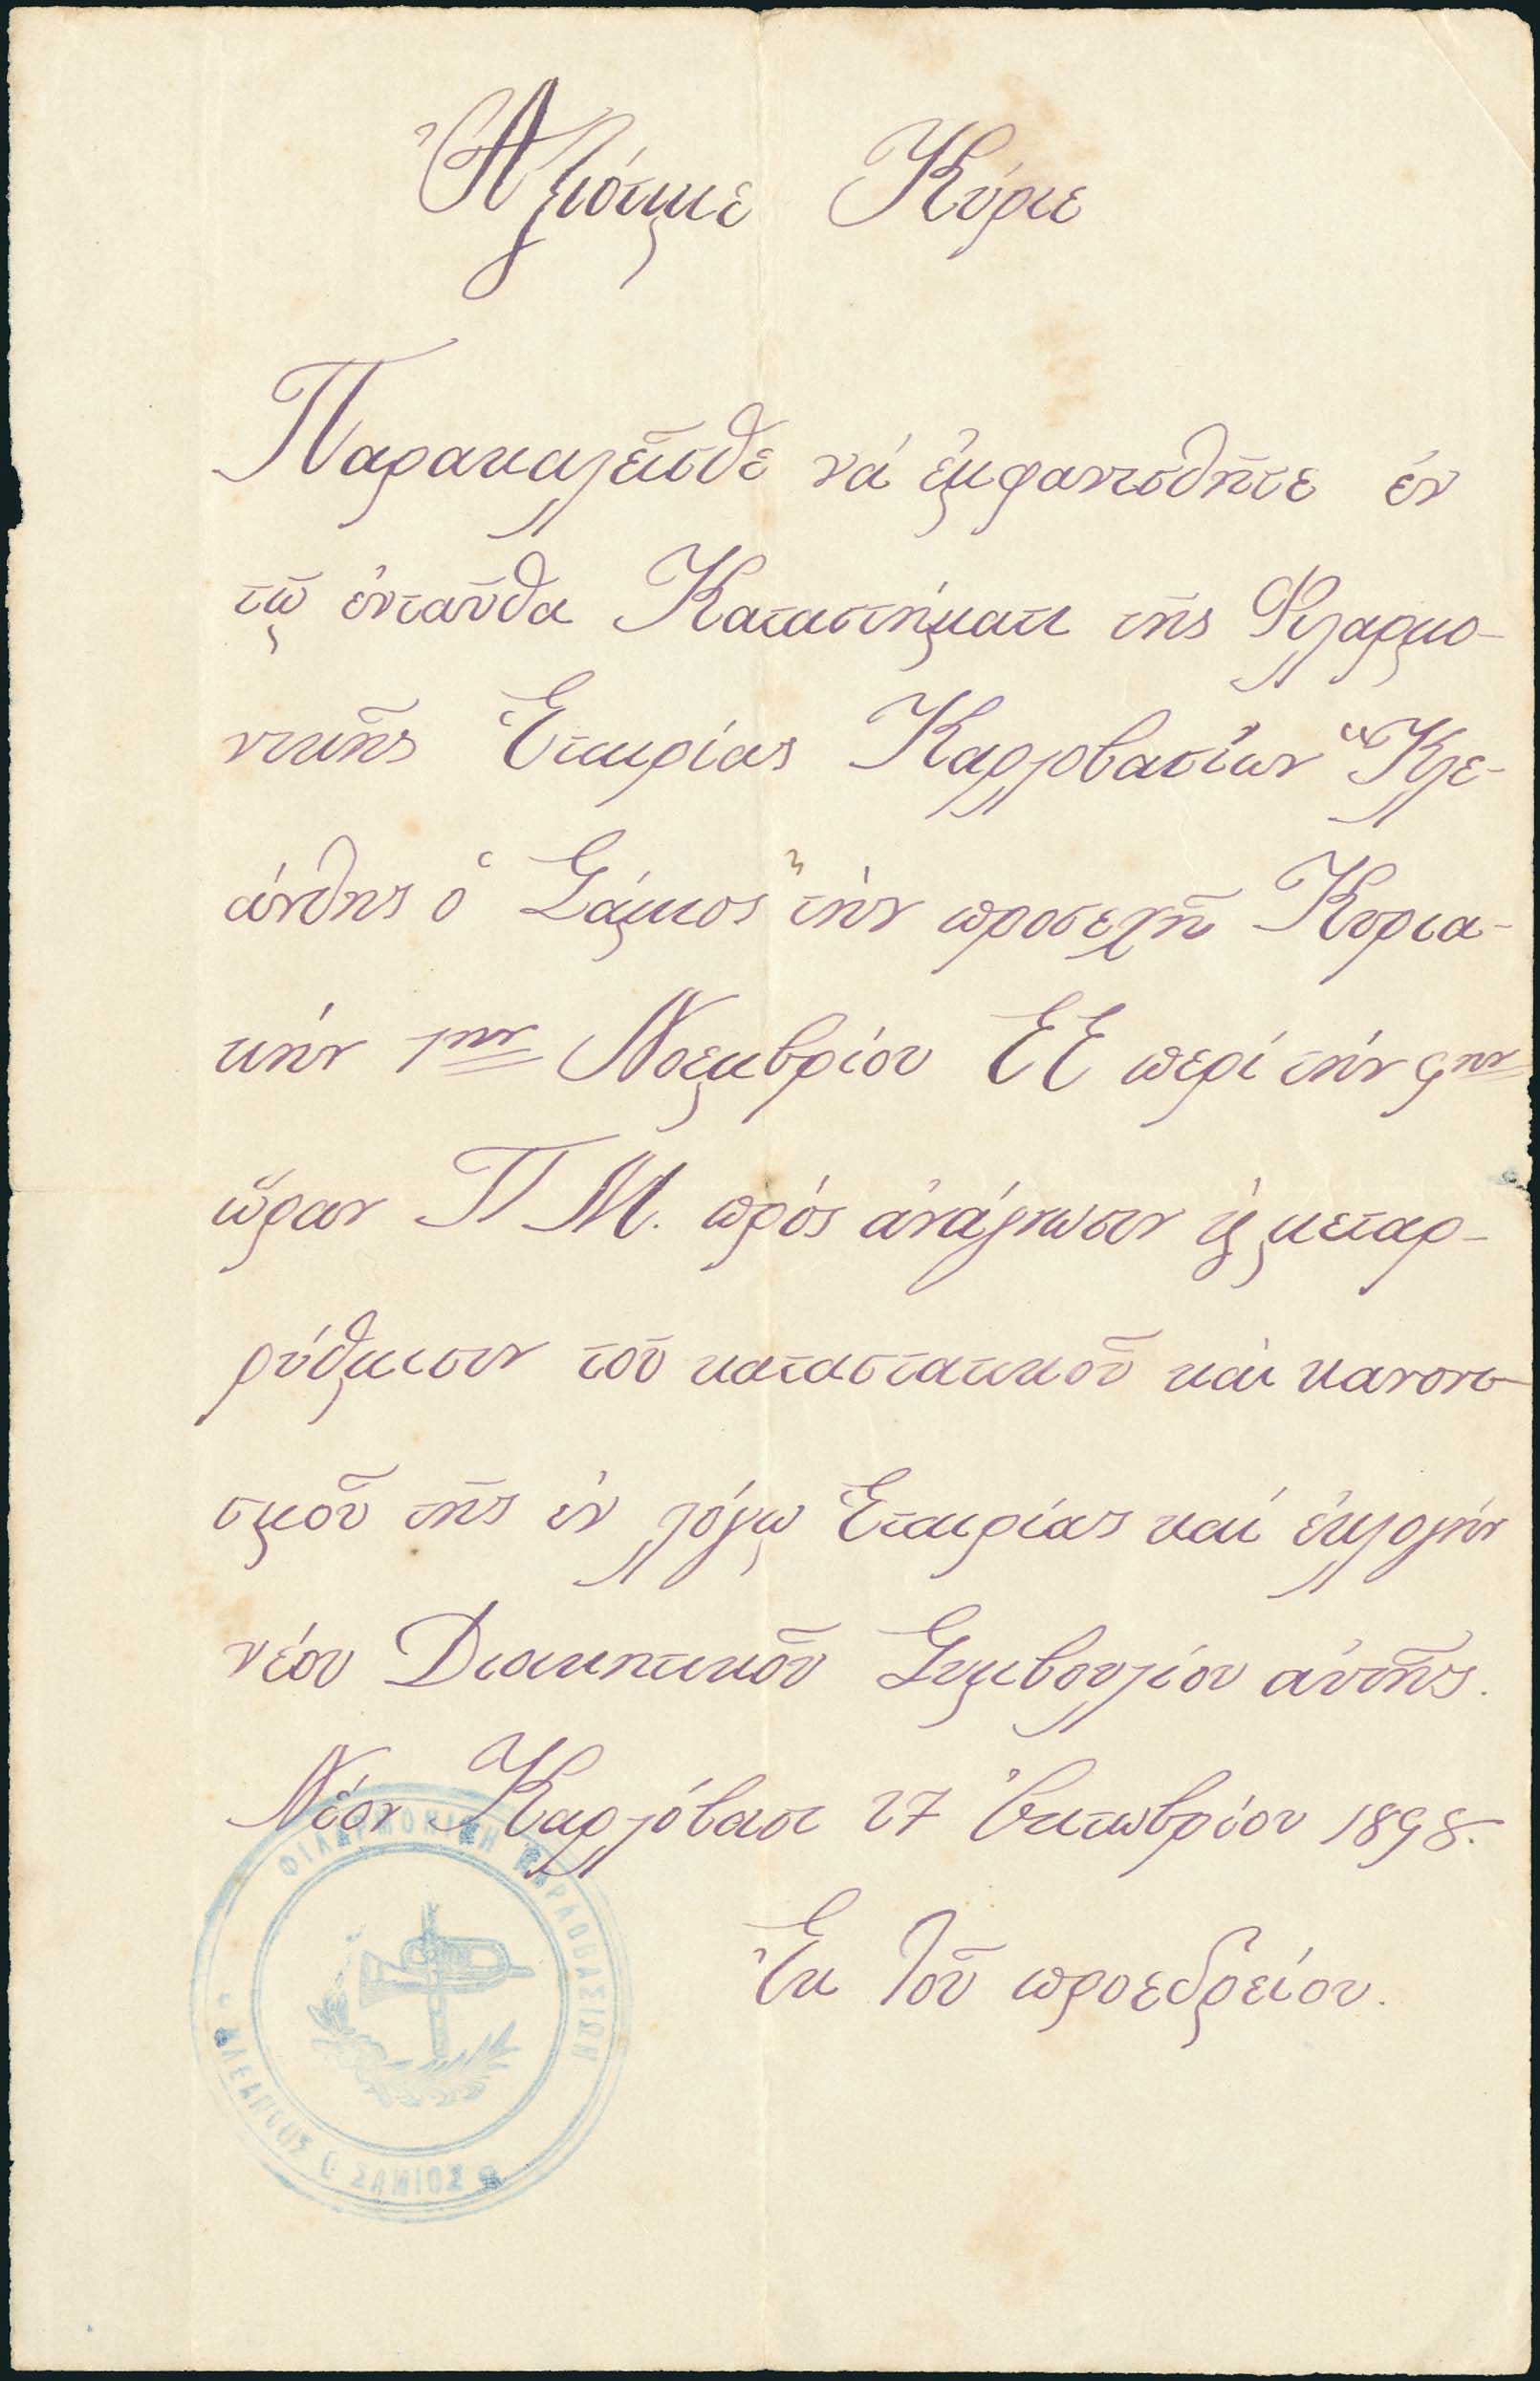 Ἀξιότιμε Κύριε
Παρακαλεῖσθε νά ἐμφανισθῆτε ἐν
τῷ ἐνταῦθα Καταστήματι τῆς Φιλαρμο-
νικῆς Ἑταιρίας Καρλοβασίων "Κλε-
άνθης ὁ Σάμιος" τήν προσεχῆ Κυρια-
κήν 1ην Νοεμβρίου ΕΕ περί τήν 9ην
ὥραν Π Μ. πρός ἀνάγνωσιν ἤ μεταρ-
ρύθμισιν τοῦ καταστατικοῦ καί κανονι-
σμοῦ τῆς ἐν λόγῳ Ἑταιρίας καί ἐκλογήν
νέου Διοικητικοῦ Συμβουλίου αὐτῆς.
Νέον Καρλόβασι 27 Ὀκτωβρίου 1898.
Ἐκ Τοῦ προεδρείου.
ΦΙΛΑΡΜΟΝΙΚΗ ΚΑΡΛΟΒΑΣΙΩΝ
Ο ΣΑΜΙΟΣ